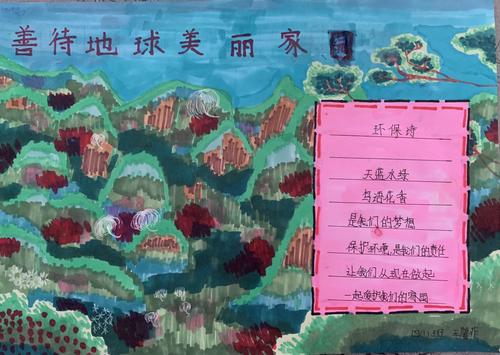 善待地球美丽家园
环保诗
天蓝水绿
鸟语花香
是我们的梦想
保护环境,是我们的责任
让我们从现在做起
一起爱护我们的家园